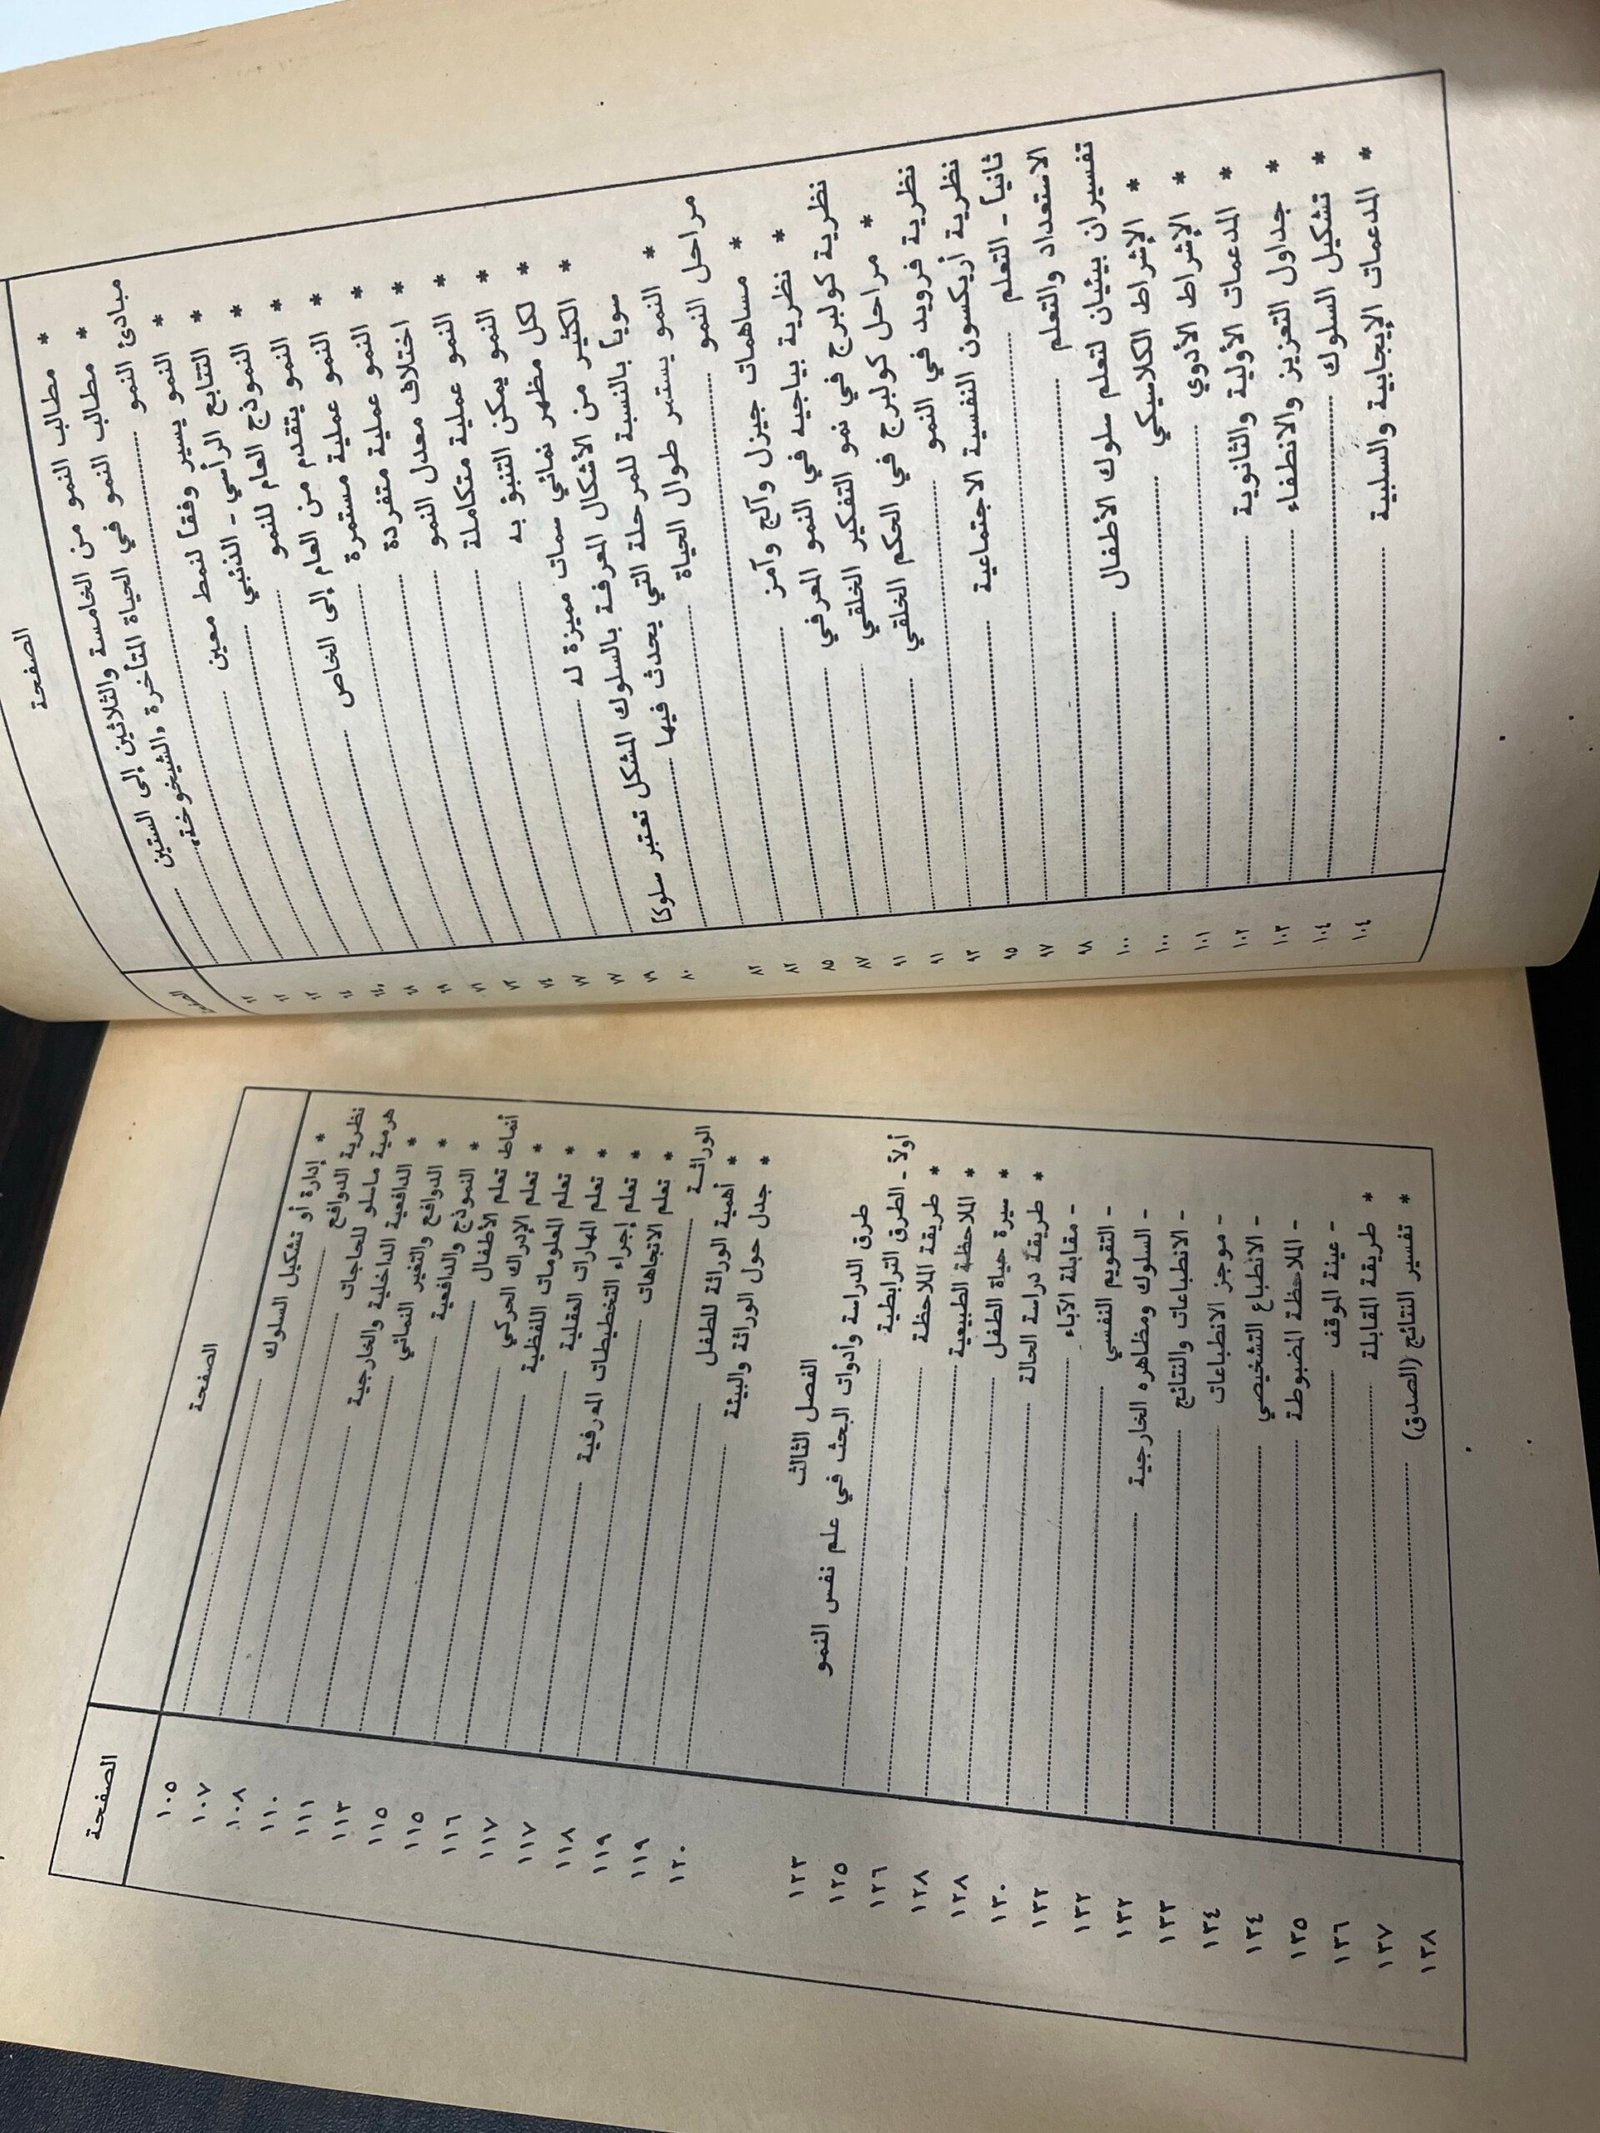 الصفحة
* مطالب النمو من الخامسة والثلاثين إلى الستين
* مطالب النمو في الحياة المتأخرة «الشيخوخة»
مبادئ النمو
* النمو يسير وفقاً لنمط معين
* التتابع الرأسي - الذنبي
* النموذج العام للنمو ٦٨
* النمو يتقدم من العام إلى الخاص ٦٩
* النمو عملية مستمرة ٧١
* النمو عملية متفردة ٧٣
* اختلاف معدل النمو ٧٤
* النمو عملية متكاملة ٧٧
* النمو يمكن التنبؤ به ٧٧
* لكل مظهر نمائي سمات مميزة له ٧٩
* الكثير من الأشكال المعرفة بالسلوك المشكل تعتبر سلوكاً ٨٠
سوياً بالنسبة للمرحلة التي يحدث فيها
* النمو يستمر طوال الحياة ٨٢
مراحل النمو ٨٢
* مساهمات جيزل وآلج وآمز ٨٥
* نظرية بياجيه في النمو المعرفي ٨٧
نظرية كولبرج في نمو التفكير الخلقي ٩١
* مراحل كولبرج في الحكم الخلقي ٩١
نظرية فرويد في النمو ٩٣
نظرية أريكسون النفسية الاجتماعية ٩٥
ثانياً - التعلم ٩٧
الاستعداد والتعلم ٩٨
تفسيران بيئيان لتعلم سلوك الأطفال ١٠٠
* الإشراط الكلاسيكي ١٠٠
* الإشراط الأدوي ١٠١
* المدعمات الأولية والثانوية ١٠٢
* جداول التعزيز والانطفاء ١٠٣
* تشكيل السلوك ١٠٤
* المدعمات الإيجابية والسلبية ١٠٤
الصفحة الصفحة
* إدارة أو تشكيل السلوك ١٠٥
نظرية الدوافع ١٠٧
هرمية ماسلو للحاجات ١٠٨
* الدافعية الداخلية والخارجية ١١٠
* الدوافع والتغير النمائي ١١١
* النموذج والدافعية ١١٣
أنماط تعلم الأطفال ١١٥
* تعلم الإدراك الحركي ١١٥
* تعلم المعلومات اللفظية ١١٦
* تعلم المهارات العقلية ١١٧
* تعلم إجراء التخطيطات المعرفية ١١٧
* تعلم الاتجاهات ١١٨
الوراثة ١١٩
* أهمية الوراثة للطفل ١١٩
* جدل حول الوراثة والبيئة ١٢٠
الفصل الثالث
طرق الدراسة وأدوات البحث في علم نفس النمو ١٢٣
أولاً - الطرق الترابطية ١٢٥
* طريقة الملاحظة ١٢٦
* الملاحظة الطبيعية ١٢٨
* سيرة حياة الطفل ١٢٨
* طريقة دراسة الحالة ١٣٠
- مقابلة الآباء ١٣٢
- التقويم النفسي ١٣٢
- السلوك ومظاهره الخارجية ١٣٢
- الانطباعات والنتائج ١٣٣
- موجز الانطباعات ١٣٤
- الانطباع التشخيصي ١٣٤
- الملاحظة المضبوطة ١٣٥
- عينة الموقف ١٣٦
* طريقة المقابلة ١٣٧
* تفسير النتائج (الصدق) ١٣٨